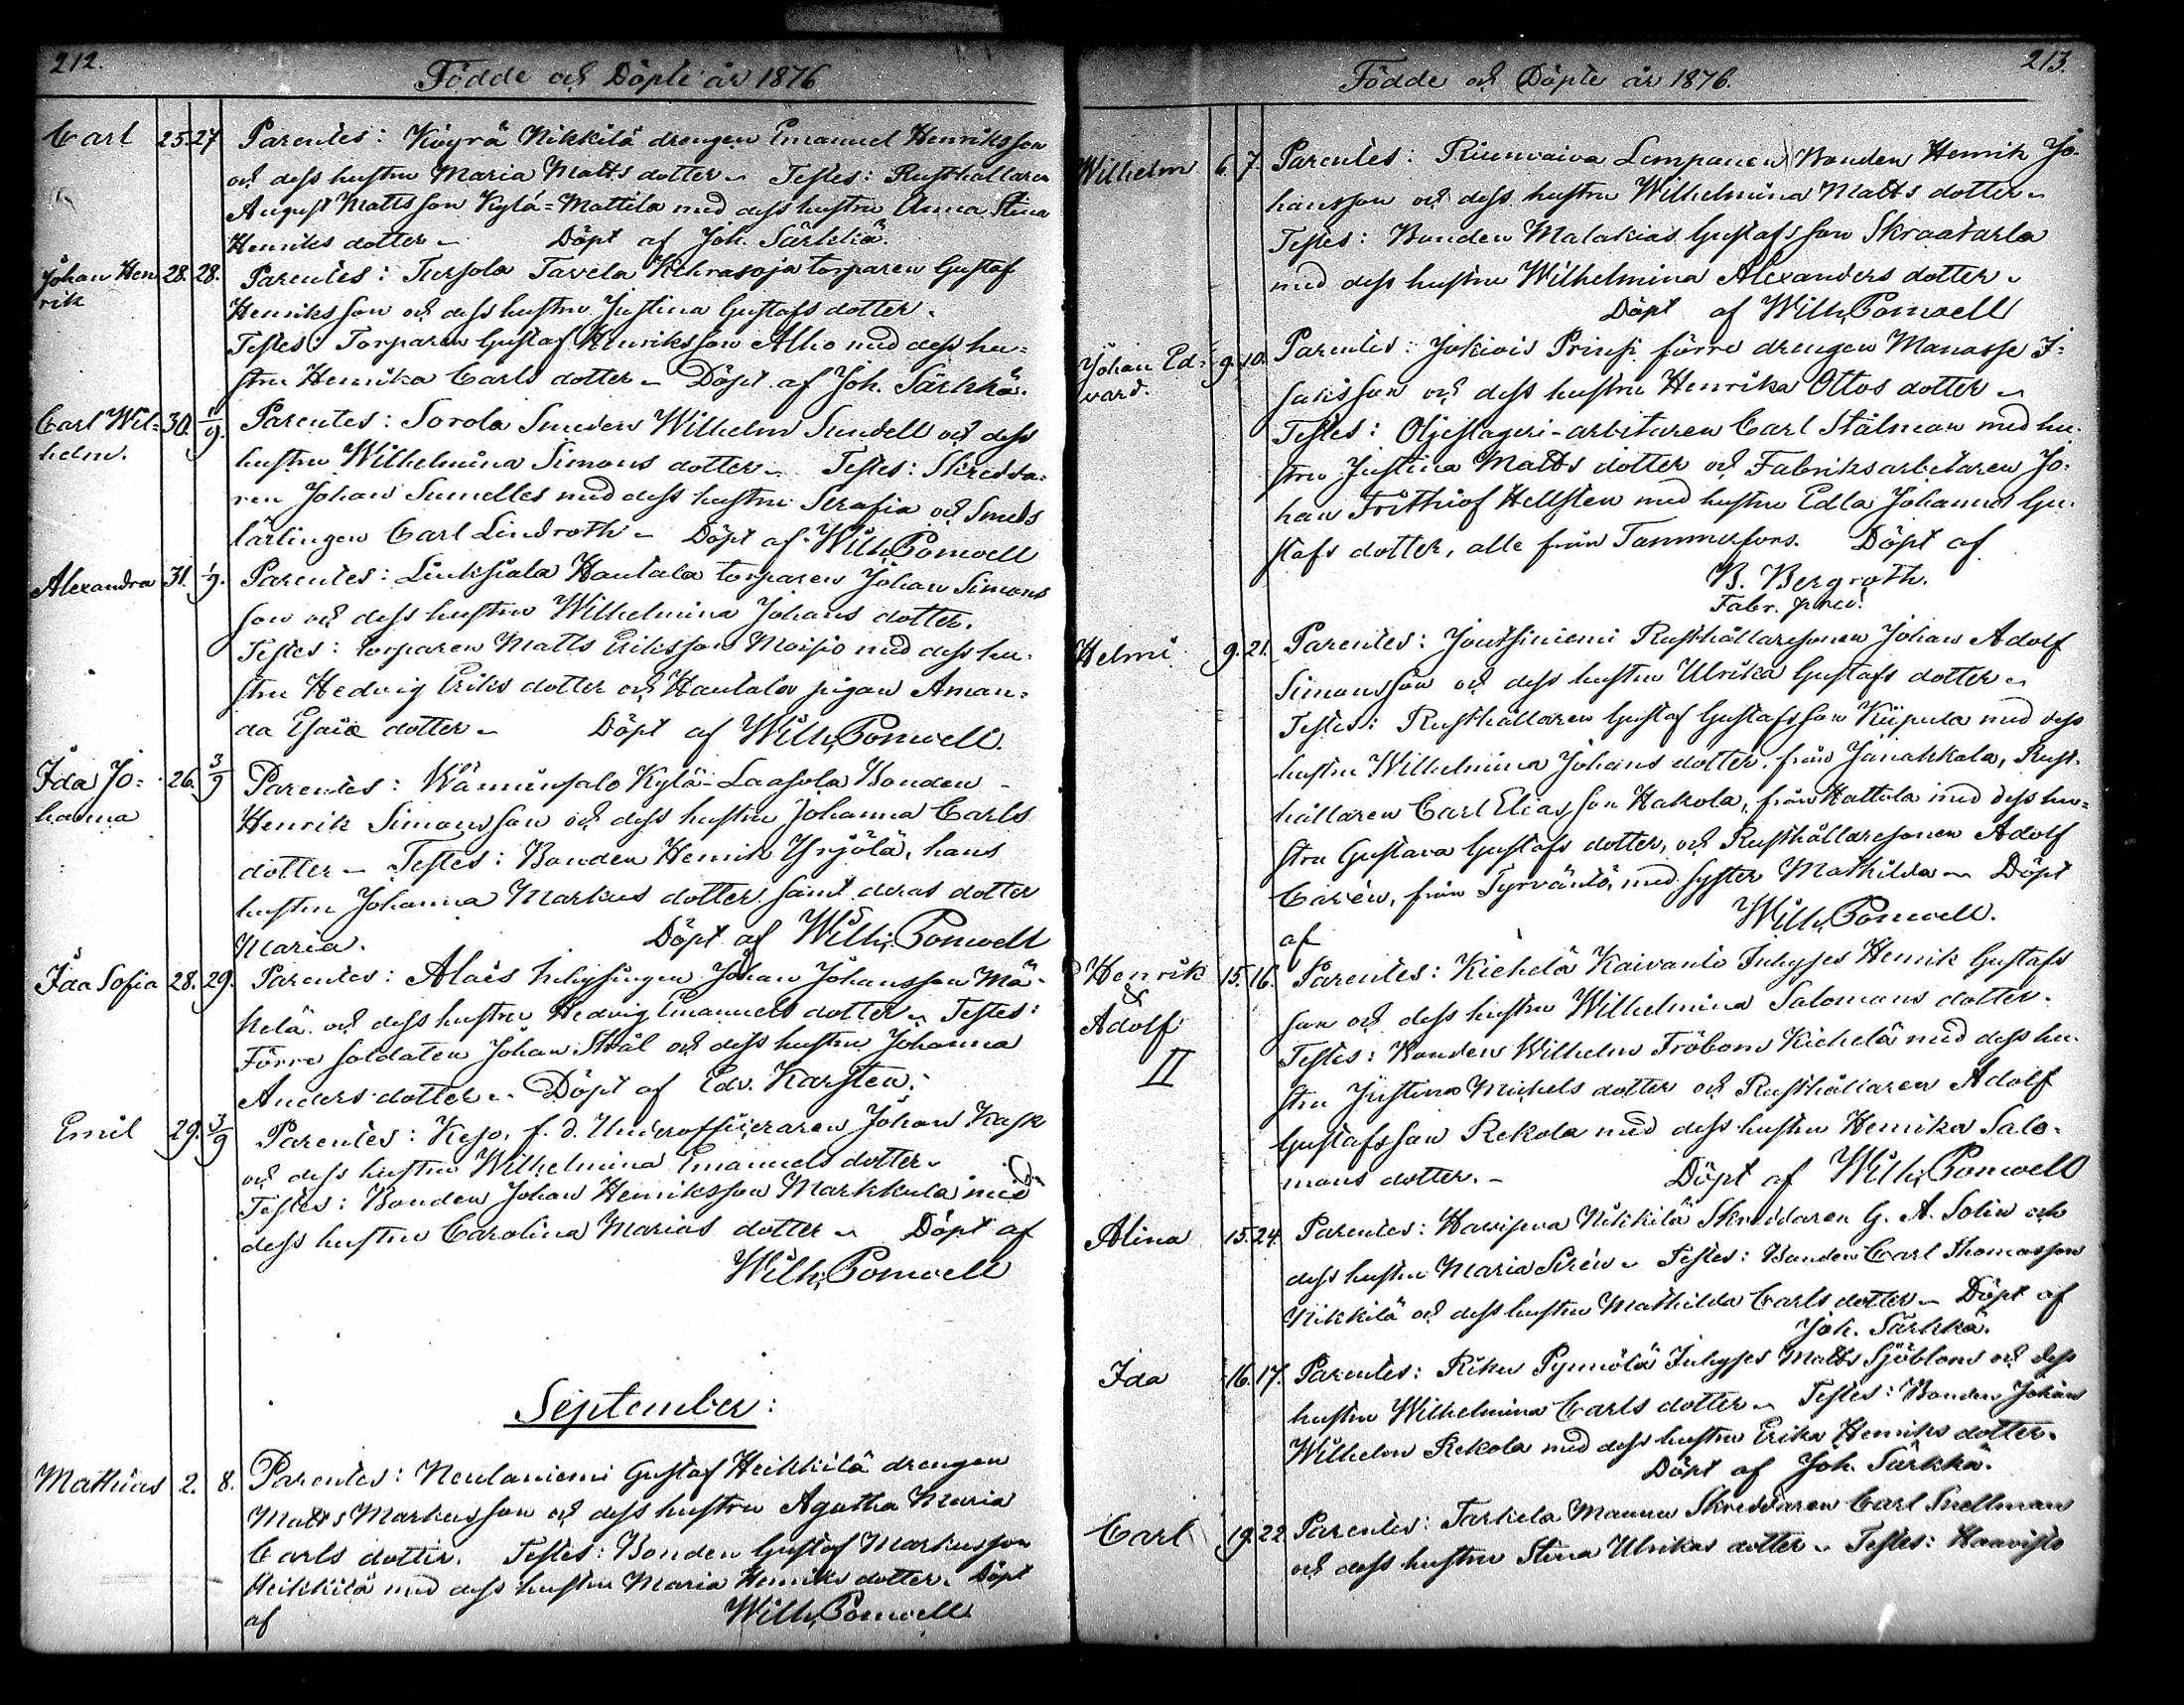 212.
Födde och Döpte år 1876
Carl 25. 27 Parentes: Köyrä Nikkilä drengen Emanuel Henriksson
och dess hustru Maria Matts dotter – Testes: Rusthållaren
August Mattsson Kylä-Mattila med dess hustru Anna Stina
Henriks dotter – Döpt af Joh. Särkkä.
Johan Hen 28. 28. Parentes: Tursola Tavela Kehrasoja torparen Gustaf
rik Henriksson och dess hustru Justina Gustafs dotter.
Testes: Torparen Gustaf Henriksson Alho med dess hu-
stru Henrika Carls dotter – Döpt af Joh. Särkkä.
Carl Wil- 30. 1/9. Parentes: Sorola Smeden Wilhelm Sundell och dess
helm. hustru Wilhelmina Simons dotter – Testes: Skredda-
ren Johan Sumelles med dess hustru Serafia och Smeds
lärlingen Carl Lindroth – Döpt af Wilh. Ponwell
Alexandra 31. 1/9. Parentes: Linksiala Hautala torparen Johan Simons
son och dess hustru Wilhelmina Johans dotter.
Testes: torparen Matts Eriksson Moisio med dess hu-
stru Hedvig Eriks dotter och Hautala pigan Aman-
da Esaie dotter – Döpt af Wilh. Ponwell.
Ida Jo- 26. 3/9 Parentes: Wänninsalo Kylä-Laasola Bonden
hanna Henrik Simonsson och dess hustru Johanna Carls
dotter – Testes: Bonden Henrik Yrjölä, hans
hustru Johanna Markus dotter samt deras dotter
Maria. Döpt af Wilh. Ponwell
Ida Sofia 28. 29. Parentes: Alais Inhysingen Johan Johansson Mä-
kelä och dess hustru Hedvig Emanuels dotter – Testes:
Förre soldaten Johan Strål och dess hustru Johanna
Anders dotter – Döpt af Edv. Karsten.
Emil 29. 3/9 Parentes: Keso, f. d. Underofficeraren Johan Kask
och dess hustru Wilhelmina Emanuels dotter –
Testes: Bonden Johan Henriksson Markkula med
dess hustru Carolina Marias dotter – Döpt af
Wilh. Ponwell
September:
Mathias 2. 8. Parentes: Neulaniemi Gustaf Heikkilä drengen
Matts Markusson och dess hustru Agatha Maria
Carls dotter. Testes: Bonden Gustaf Markusson
Heikkilä med dess hustru Maria Henriks dotter. Döpt
af Wilh. Ponwell
213.
Födde och Döpte år 1876.
Wilhelm 6. 7. Parentes: Riuenvaiva Lempanen Bonden Henrik Jo-
hansson och dess hustru Wilhelmina Matts dotter –
Testes: Bonden Malakias Gustafsson Skraatarla
med dess hustru Wilhelmina Alexanders dotter –
Döpt af Wilh. Ponwell
Johan Ed- 9. 10. Parentes: Jokiois Prinsi förre drengen Manasse I-
vard. saksson och dess hustru Henrika Ottos dotter –
Testes: Oljeslageri-arbetaren Carl Stålman med hu-
stru Justina Matts dotter och Fabriksarbetaren Jo-
han Frithiof Hellsten med hustru Edla Johanna Gu-
stafs dotter, alle från Tammerfors. Döpt af
B. Bergroth.
Fabr. pred.
Helmi 9. 21. Parentes: Joutsiniemi Rusthållaresonen Johan Adolf
Simonsson och dess hustru Ulrika Gustafs dotter –
Testes: Rusthållaren Gustaf Gustafsson Kiipula med dess
hustru Wilhelmina Johans dotter, från Janakkala, Rust-
hållaren Carl Eliasson Hakola, från Hattula med dess hu-
stru Gustava Gustafs dotter, och Rusthållaresonen Adolf
Carén, från Tyrväntö, med syster Mathilda – Döpt
af Wilh. Ponwell.
Henrik 15. 16. Parentes: Kiehelä Kaivanto Inhyses Henrik Gustafs
& son och dess hustru Wilhelmina Salomons dotter.
Adolf Testes: Bonden Wilhelm Fröbom Kiehelä med dess hu-
II stru Justina Michels dotter och Rusthållaren Adolf
Gustafsson Rekola med dess hustru Henrika Salo-
mons dotter. – Döpt af Wilh. Ponwell
Alina 15. 24. Parentes: Haviseva Nikkilä Skreddaren G. A. Solin och
dess hustru Maria Sirén – Testes: Bonden Carl Thomasson
Nikkilä och dess hustru Mathilda Carls dotter – Döpt af
Joh. Särkkä.
Ida 16. 17. Parentes: Riku Pynnölä Inhyses Matts Sjöblom och dess
hustru Wilhelmina Carls dotter – Testes: Bonden Johan
Wilhelm Rekola med dess hustru Erika Henriks dotter.
Döpt af Joh. Särkkä.
Carl 19. 22. Parentes: Tarkela Mannu Skreddaren Carl Snellman
och dess hustru Stina Ulrikas dotter – Testes: Haavisto